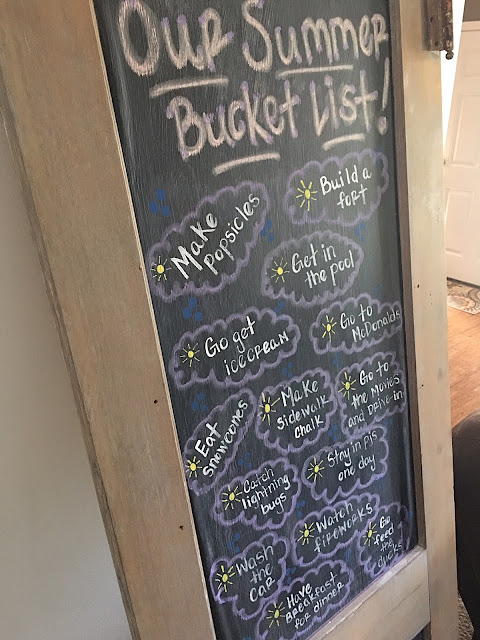 Our Summer
Bucket List!
Make
popsicles
Build a
fort
Get in
the pool
Go get
icecream
Go to
McDonalds
Eat
snowcones
Make
sidewalk
chalk
Go to
the Movies
and Drive-in
Catch
lightning
bugs
Stay in pjs
one day
Wash
the
car
Watch
fireworks
Go
feed
the
ducks
Have
Breakfast
for dinner